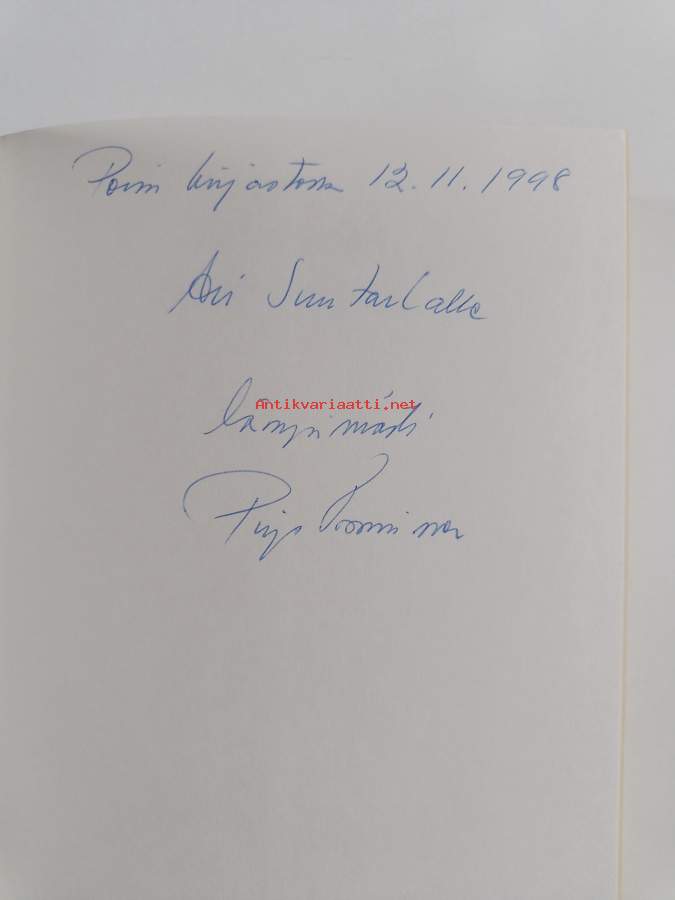 Porin kirjastossa 12.11.1998
Ari Suntarlalle
Antikvariaatti.net
lämpimästi
Pirjo